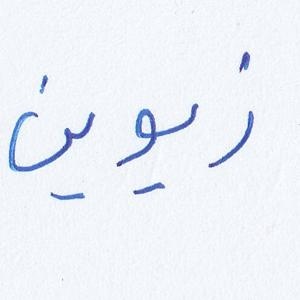 زیوین